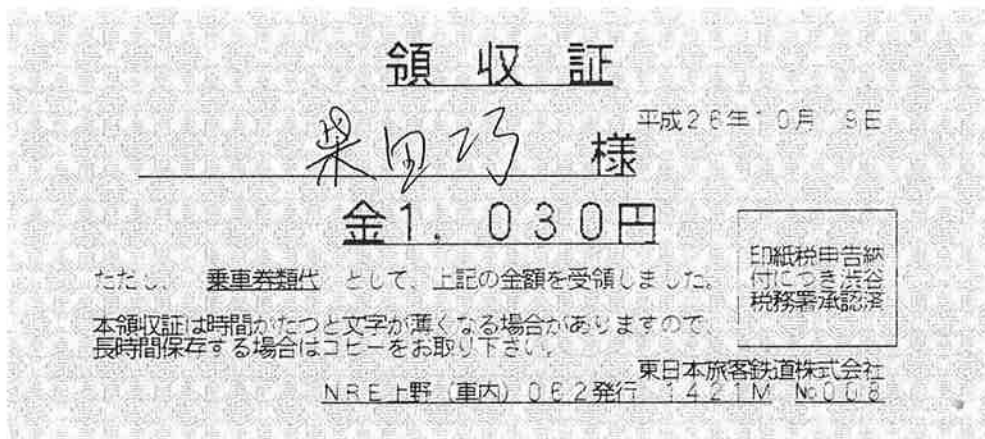 領収証
平成26年10月19日
柴田巧 様
金1,030円
ただし、 乗車券類代 として、上記の金額を受領しました。
印紙税申告納
付につき渋谷
税務署承認済
本領収証は時間がたつと文字が薄くなる場合がありますので、
長時間保存する場合はコピーをお取り下さい。
東日本旅客鉄道株式会社
NRE上野（車内）062発行 1421M №008